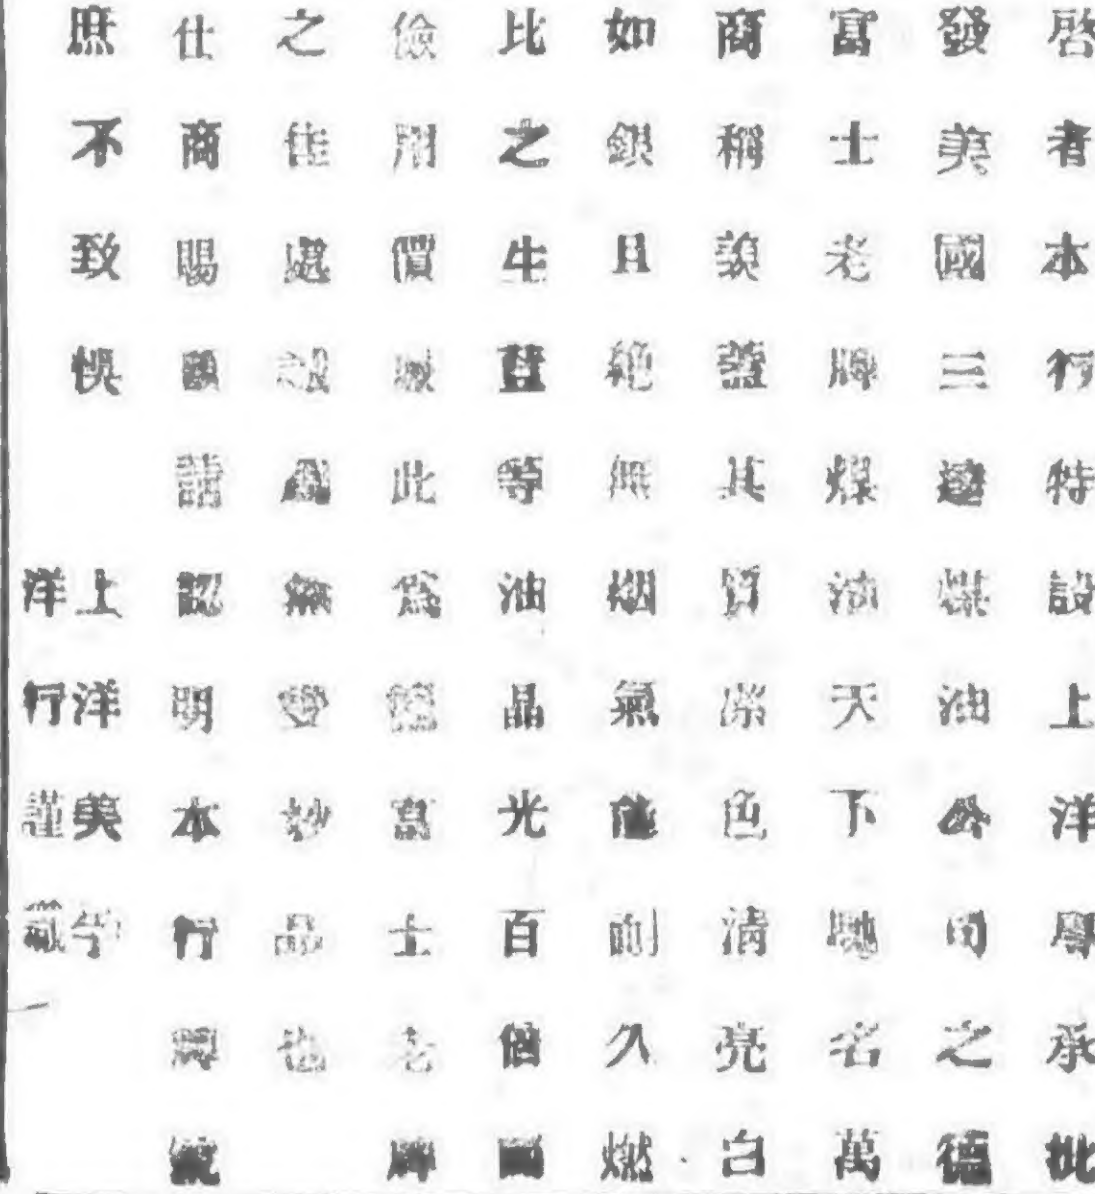 啓者本行特設上洋專承批
發美國三達煤油公司之德
富士老牌煤油天下馳名萬
商稱羨蓋其質潔色清亮白
如銀且絕無烟氣能耐久燃
比之生蓋等油晶光百倍圖
儉用價城此爲德富士老牌
之佳處誠爲無雙妙品也
仕商賜顧請認明本行牌號
庶不致悞
上洋美孚
洋行謹識